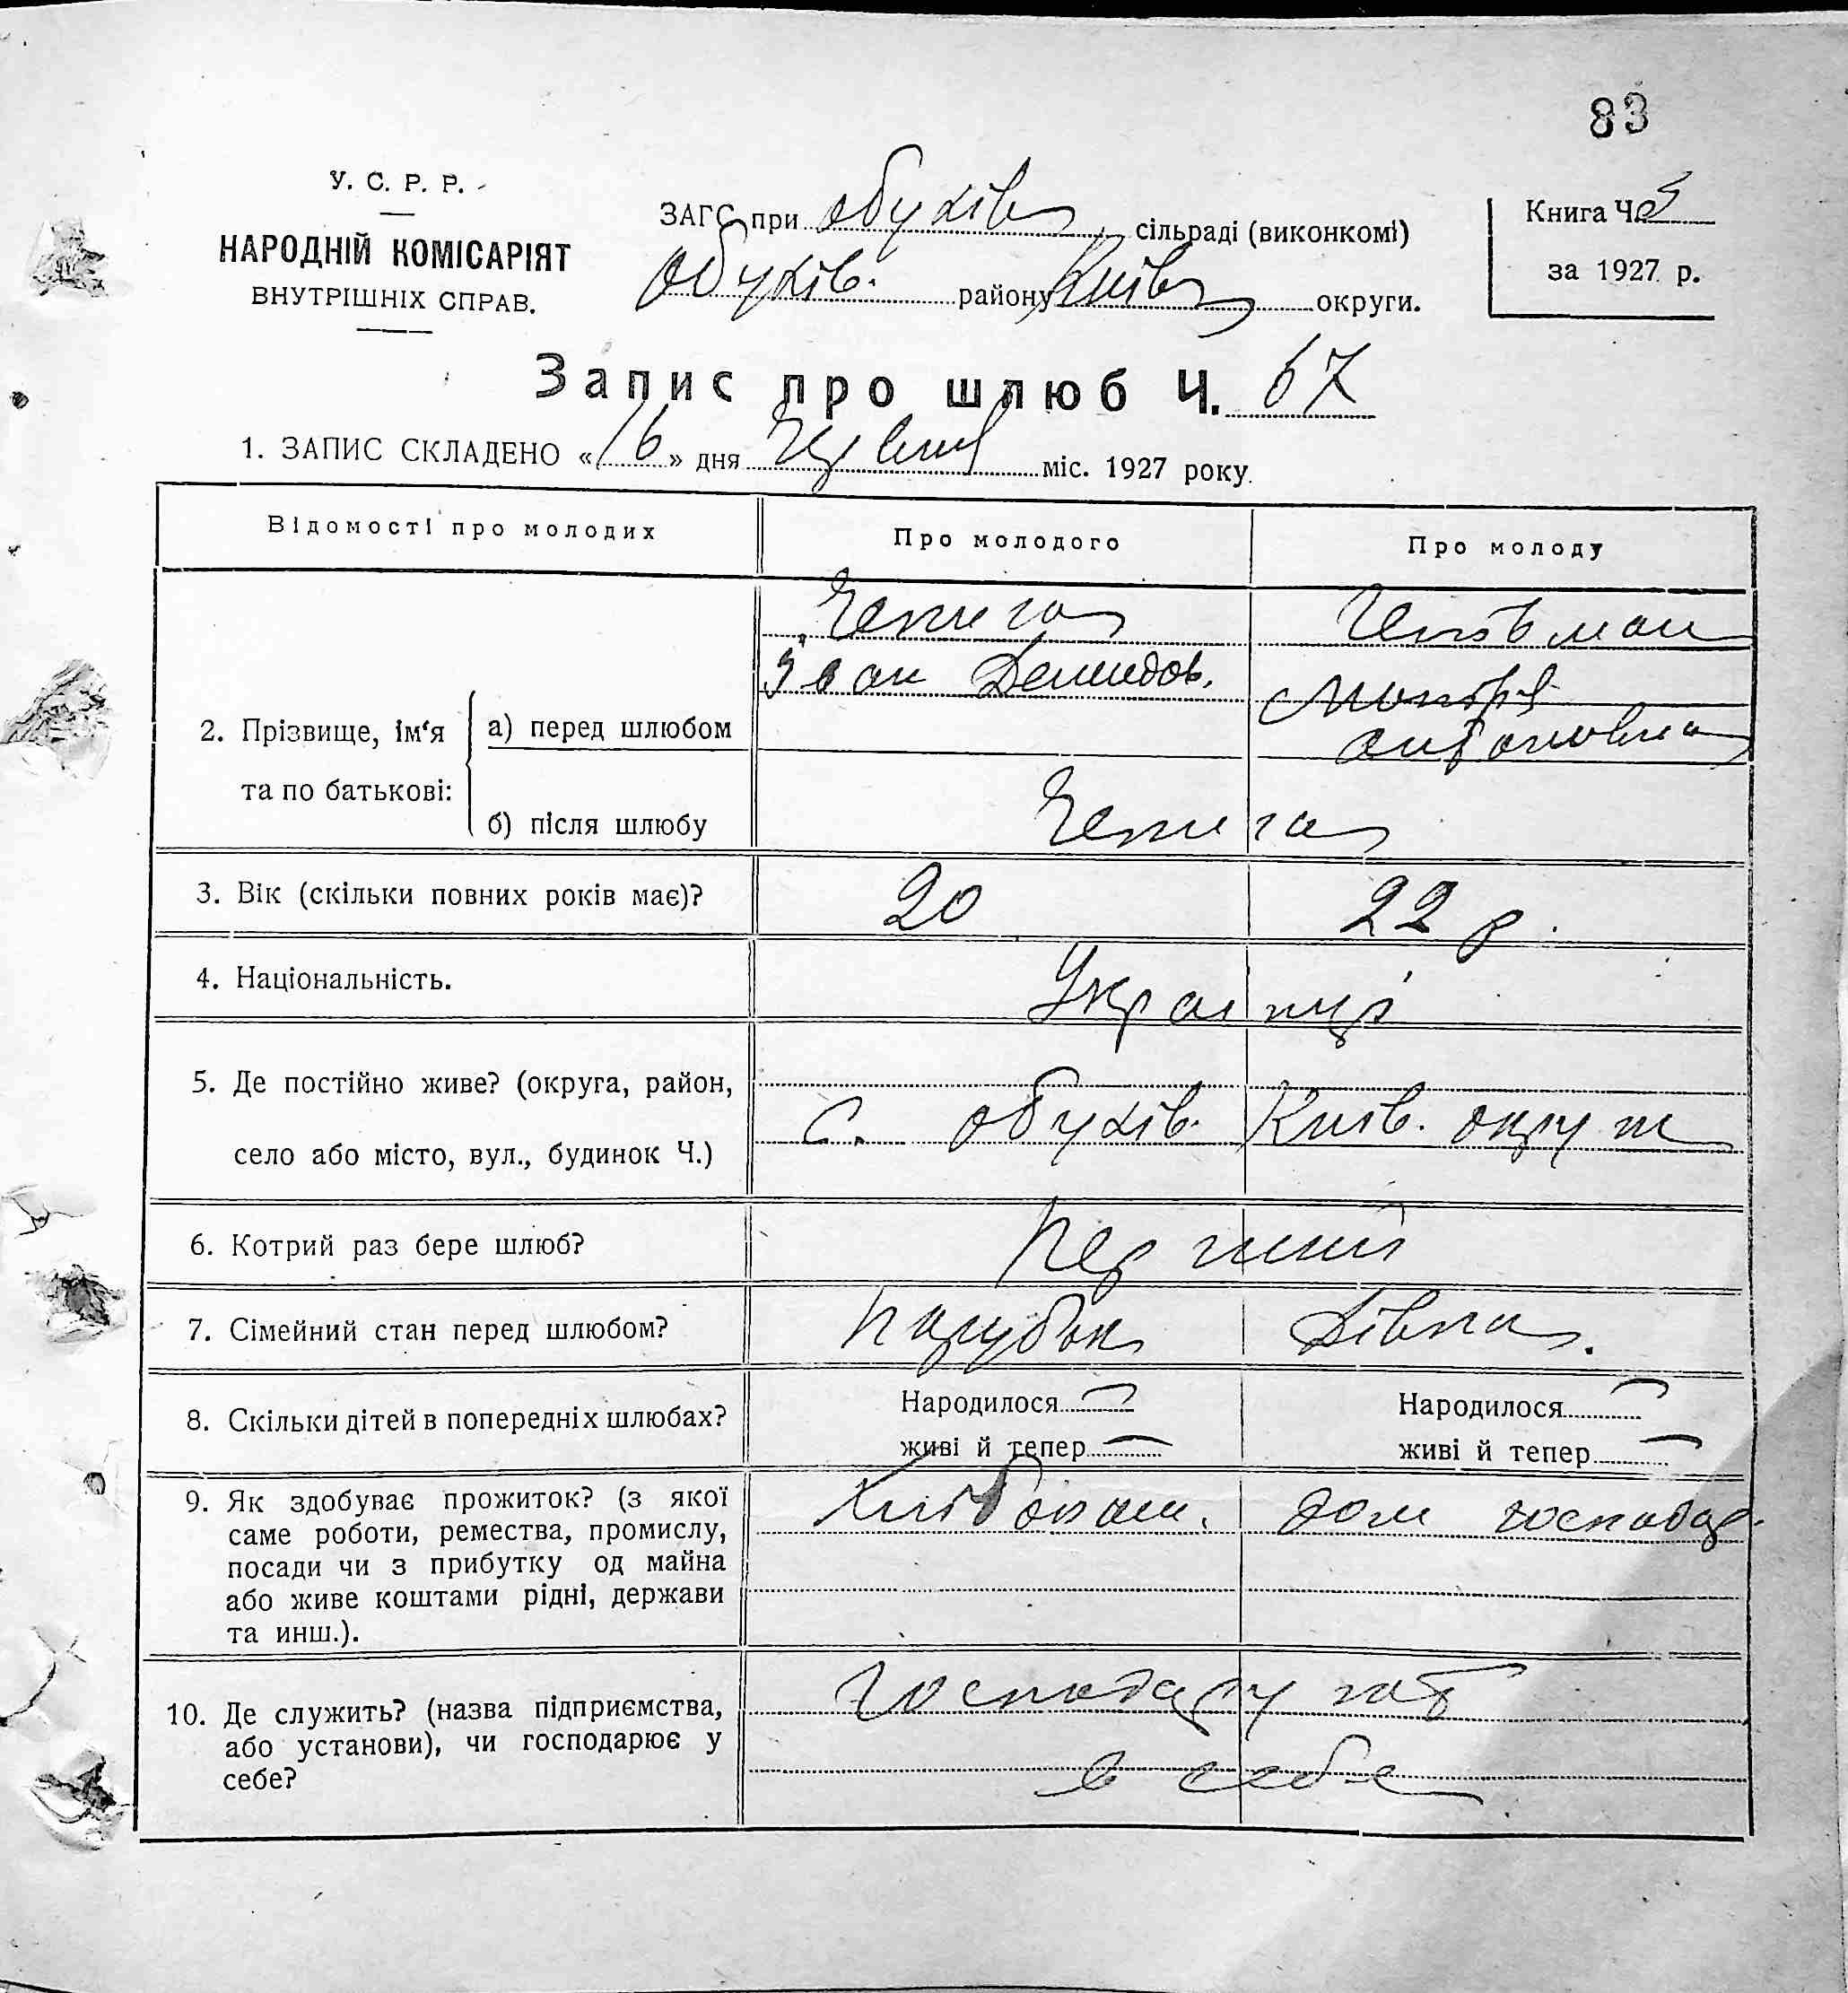 83
У. С. Р. Р.
НАРОДНІЙ КОМІСАРІЯТ
ВНУТРІШНІХ СПРАВ.
ЗАГС при Обухів сільраді (виконкомі)
Обухів. району Київ округи.
Книга Ч.
за 1927 р.
Запис про шлюб Ч. 67
1. ЗАПИС СКЛАДЕНО «16» дня Червня міс. 1927 року.
Відомості про молодих
Про молодого
Про молоду
2. Прізвище, ім'я та по батькові:
а) перед шлюбом
Чепига
Іван Демидов.
Мотря
Антоновна
б) після шлюбу
Чепига
3. Вік (скільки повних років має)?
20
22 р.
4. Національність.
Українці
5. Де постійно живе? (округа, район,
село або місто, вул., будинок Ч.)
с. Обухів. Київ. округи
6. Котрий раз бере шлюб?
Перший
7. Сімейний стан перед шлюбом?
Парубок
Дівка.
8. Скільки дітей в попередніх шлюбах?
Народилося —
живі й тепер —
Народилося —
живі й тепер —
9. Як здобуває прожиток? (з якої
саме роботи, ремества, промислу,
посади чи з прибутку од майна
або живе коштами рідні, держави
та инш.).
Хлібопаш.
дом господар.
10. Де служить? (назва підприємства,
або установи), чи господарює у
себе?
Господарують
в себе